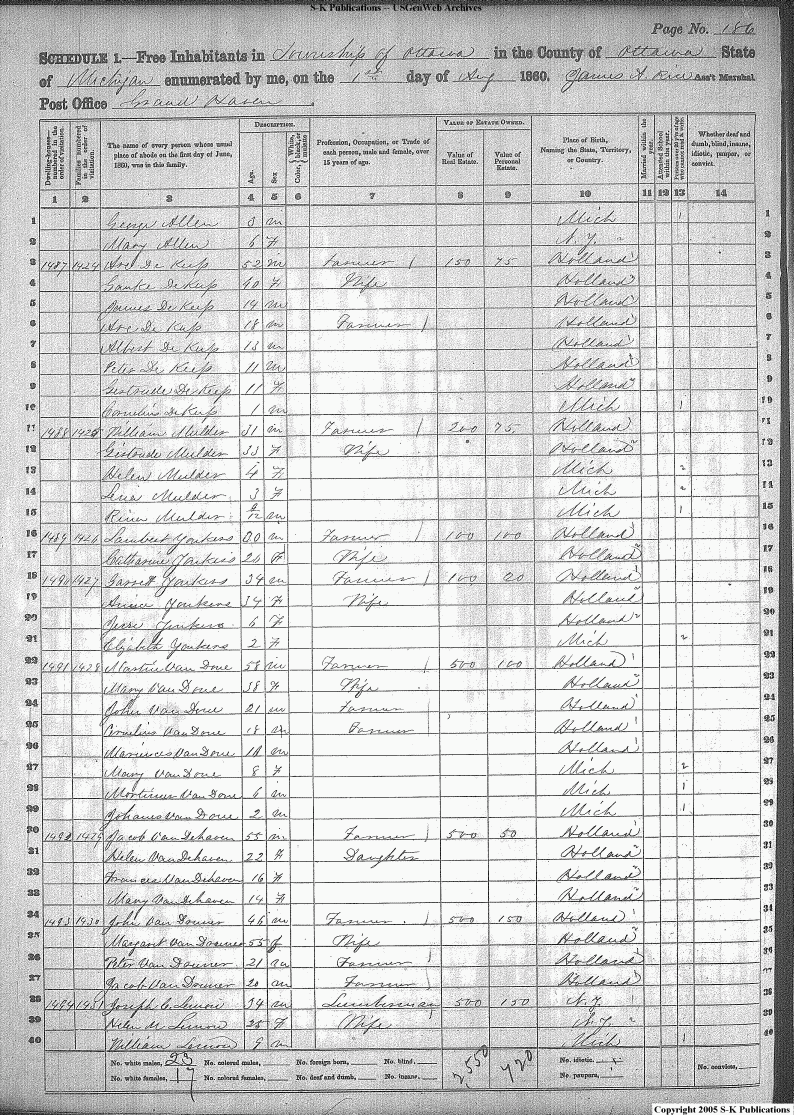 S-K Publications -- USGenWeb Archives
Page No. 186
SCHEDULE 1.—Free Inhabitants in Township of Ottawa in the County of Ottawa State
of Michigan enumerated by me, on the 1st day of Aug 1860. James A. Rice Ass't Marshal
Post Office Grand Haven.
Dwelling-houses numbered in the order of visitation. Families numbered in the order of visitation. The name of every person whose usual place of abode on the first day of June, 1860, was in this family. DESCRIPTION. Age. Sex White, black, or mulatto Color Profession, Occupation, or Trade of each person, male and female, over 15 years of age. VALUE OF ESTATE OWNED. Value of Real Estate. Value of Personal Estate. Place of Birth, Naming the State, Territory, or Country. Married within the year. Attended School within the year. Persons over 20 y'rs of age who cannot read & write. Whether deaf and dumb, blind, insane, idiotic, pauper, or convict.
1 2 3 4 5 6 7 8 9 10 11 12 13 14
1 George Allen 8 m Mich 1 1
2 Mary Allen 6 F N.Y. 2
3 1487 1424 De Keip 52 m Farmer 150 75 Holland 3
4 De Keip 40 F Wife Holland 4
5 James De Keip 19 m Holland 5
6 De Keip 18 m Farmer Holland 6
7 Albert De Keip 13 m Holland 7
8 Peter De Keip 11 m Holland 8
9 Gertrude De Keip 11 F Holland 9
10 Cornelius De Keip 1 m Mich 1 10
11 1488 1425 William Mulder 31 m Farmer 200 75 Holland 11
12 Gertrude Mulder 33 F Wife Holland 12
13 Helen Mulder 4 F Mich 2 13
14 Lena Mulder 3 F Mich 2 14
15 Mulder m Mich 1 15
16 1489 1426 Lambert Yonkers 30 m Farmer 100 100 Holland 16
17 Catharine Yonkers 26 F Wife Holland 17
18 1490 1427 Garrett Yonkers 34 m Farmer 100 20 Holland 18
19 Yonkers 34 F Wife Holland 19
20 Yonkers 6 F Holland 20
21 Elizabeth Yonkers 2 F Mich 2 21
22 1491 1428 Van Doue 58 m Farmer 500 100 Holland 22
23 Mary Van Doue 38 F Wife Holland 23
24 John Van Doue 21 m Farmer Holland 24
25 Cornelius Van Doue 18 m Farmer Holland 25
26 Van Doue m Holland 26
27 Mary Van Doue 8 F Mich 2 27
28 Mortimer Van Doue 6 m Mich 1 28
29 Johanes Van Doue 2 m Mich 1 29
30 1492 1429 Jacob Van Dehaven 55 m Farmer 500 50 Holland 30
31 Helen Van Dehaven 22 F Daughter Holland 31
32 Frances Van Dehaven 16 F Holland 32
33 Mary Van Dehaven 14 F Holland 33
34 1493 1430 John Van Douner 46 m Farmer 500 150 Holland 34
35 Margaret Van Douner 55 f Wife Holland 35
36 Peter Van Douner 21 m Farmer Holland 36
37 Jacob Van Douner 20 m Farmer Holland 37
38 1494 1431 Joseph C. Lemon 34 m Lumberman 500 150 N.Y. 38
39 Helen M. Lemon 25 F Wife N.Y. 39
40 William Lemon 9 m Mich 1 40
No. white males, 23 No. colored males, No. foreign born, No. blind, 2550 420 No. idiotic, No. convicts,
No. white females, 17 No. colored females, No. deaf and dumb, No. insane, No. paupers,
Copyright 2005 S-K Publications